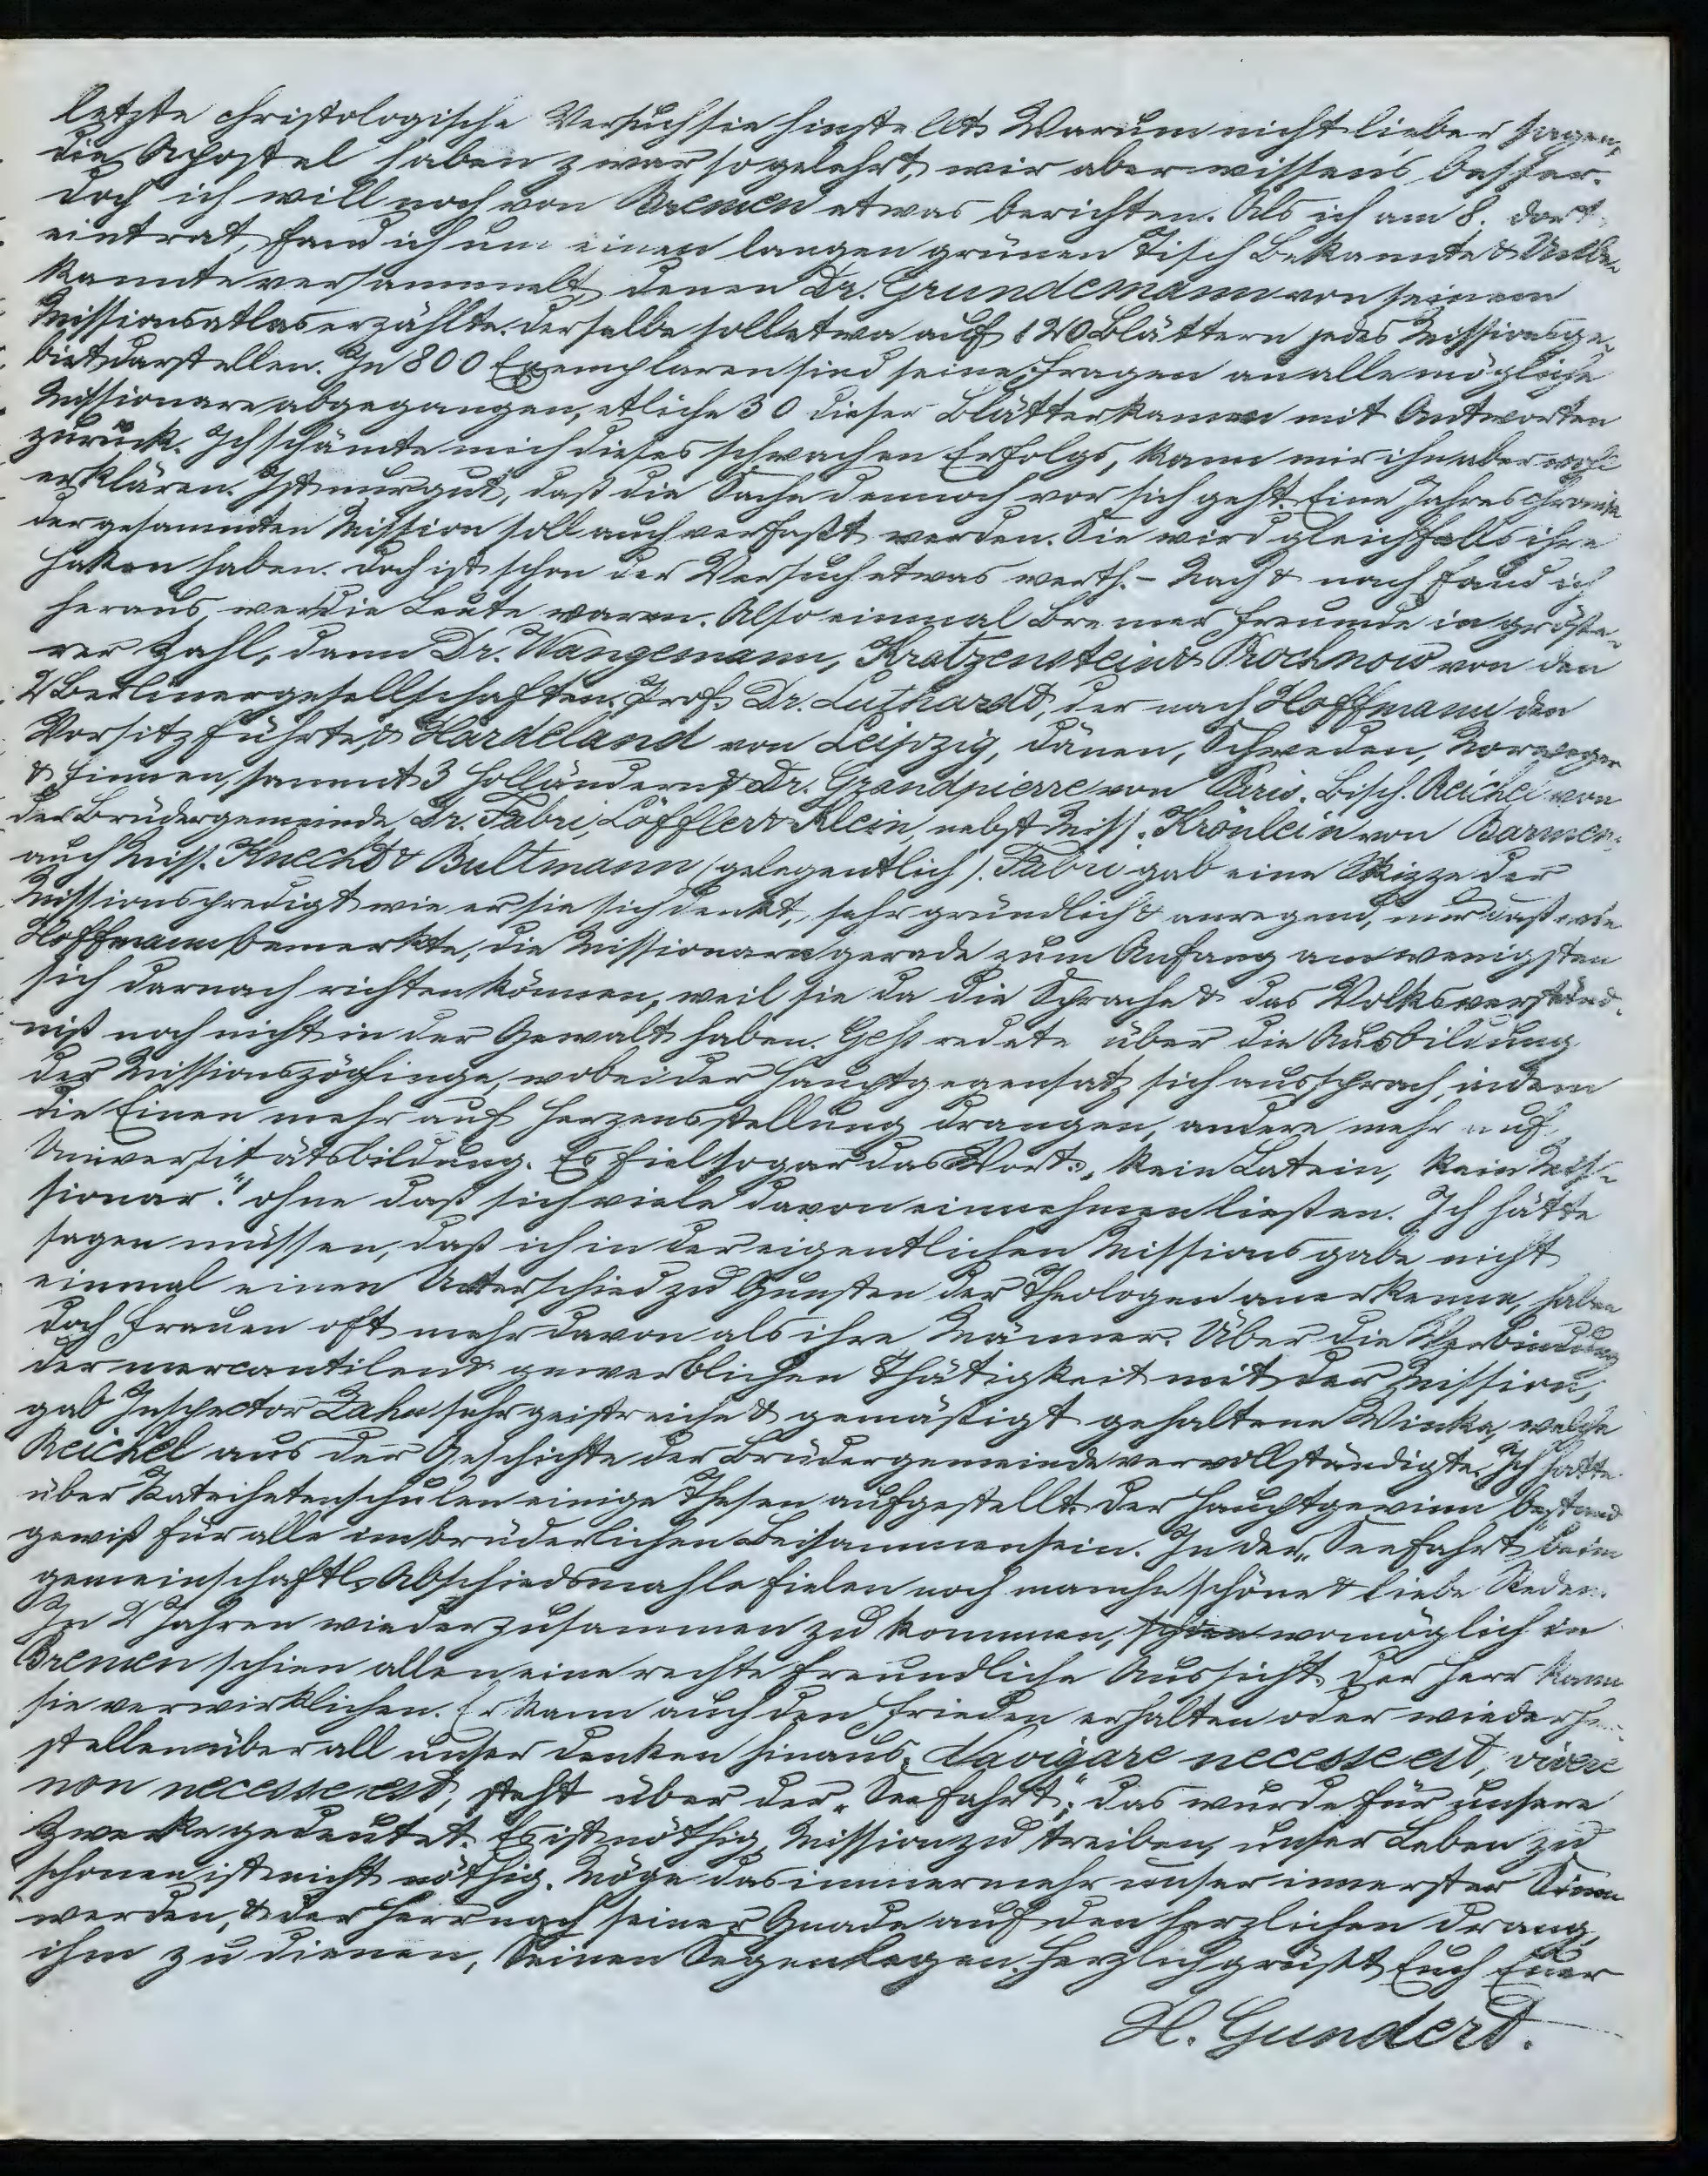 letzte christologische Versuch sie hinstellt. Warum nicht lieber sagen,
die Apostel haben zwar so gelehrt, wir aber wissens besser.
Doch ich will noch von Bremen etwas berichten. Als ich am 8. dort
eintrat, fand ich um einen langen grünen Tisch Bekannte & Unbe-
kannte versammelt, denen Dr. Grundemann von seinem
Missionsatlas erzählte. Derselbe soll etwa auf 120 Blättern jedes Missionsge-
biet darstellen. In 800 Exemplaren sind seine Fragen an alle mögliche
Missionare abgegangen, etliche 30 dieser Blätter kamen mit Antworten
zurück. Ich schämte mich dieses schwachen Erfolgs, kann mir ihn aber wohl
erklären. Ist nur gut, daß die Sache dennoch vor sich geht. Eine Jahreschronik
der gesammten Mission soll auch verfaßt werden. Sie wird gleichfalls ihre
Haken haben. Doch ist schon der Versuch etwas werth. – Nach & nach fand ich
heraus, wer die Leute waren. Also einmal Bremer Freunde in größe-
rer Zahl, dann Dr. Wangemann, Kratzenstein & Prochnow von den
2 Berlinergesellschaften. Prof. Dr. Luthardt, der nach Hoffmann den
Vorsitz führte, & Hardeland von Leipzig, Dänen, Schweden, Norweger
& Finnen, sammt 3 Holländern & Dr. Grandpierre von Paris. Bisch. Reichel von
der Brüdergemeinde, Dr. Fabri, Löffler & Klein, nebst Miss. Krönlein von Barmen,
auch Miss. Knecht & Bultmann (gelegentlich). Fabri gab eine Skizze der
Missionspredigt wie er sie sich denkt, sehr gründlich & anregend, nur daß wie
Hoffmann bemerkte, die Missionare gerade zum Anfang am wenigsten
sich darnach richten können, weil sie da die Sprache & das Volksverständ-
niß noch nicht in der Gewalt haben. Geß redete über die Ausbildung
der Missionszöglinge, wobei der Hauptgegensatz sich aussprach, indem
die Einen mehr auf Herzensstellung drangen, andere mehr auf
Universitätsbildung. Es fiel sogar das Wort: „Kein Latein, kein Mis-
sionar." ohne daß sich viele davon einnehmen ließen. Ich hätte
sagen müssen, daß ich in der eigentlichen Missionsgabe nicht
einmal einen Unterschied zu Gunsten der Theologen anerkenne, haben
doch Frauen oft mehr davon als ihre Männer. Über die Verbindung
der mercantilen & gewerblichen Thätigkeit mit der Mission,
gab Inspector Zahn sehr geistreiche & gemäßigt gehaltene Winke, welche
Reichel aus der Geschichte der Brüdergemeinde vervollständigte. Ich hatte
über Katechetenschulen einige Thesen aufgestellt. Der Hauptgewinn bestand
gewiß für alle im brüderlichen Beisammensein. In der „Seefahrt" beim
gemeinschaftl. Abschiedsmahle fielen noch manche schöne & liebe Reden.
In 2 Jahren wieder zusammen zu kommen, schien womöglich in
Bremen schien allen eine rechte freundliche Aussicht. Der Herr kann
sie verwirklichen. Er kann auch den Frieden erhalten oder wiederher-
stellen über all unser Denken hinaus. Navigare necesse est, vivere
non necesse est, steht über der „Seefahrt"; das wurde für unsere
Zwecke gedeutet. Es ist nöthig, Mission zu treiben, unser Leben zu
schonen ist nicht nöthig. Möge das immer mehr unser innerster Sinn
werden, & der Herr nach seiner Gnade auf den herzlichen Drang,
ihm zu dienen, Seinen Segen legen. Herzlich grüßt Euch Euer
H. Gundert.